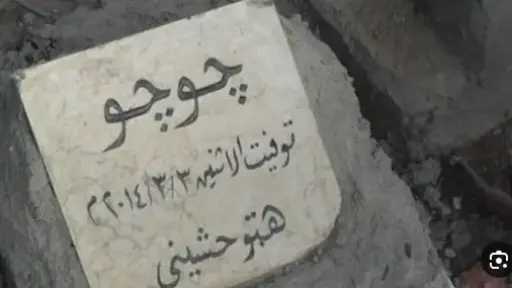 چوچو
توفيت الاثنين ٣/٣/٢٠١٤م
هبتوحشيني